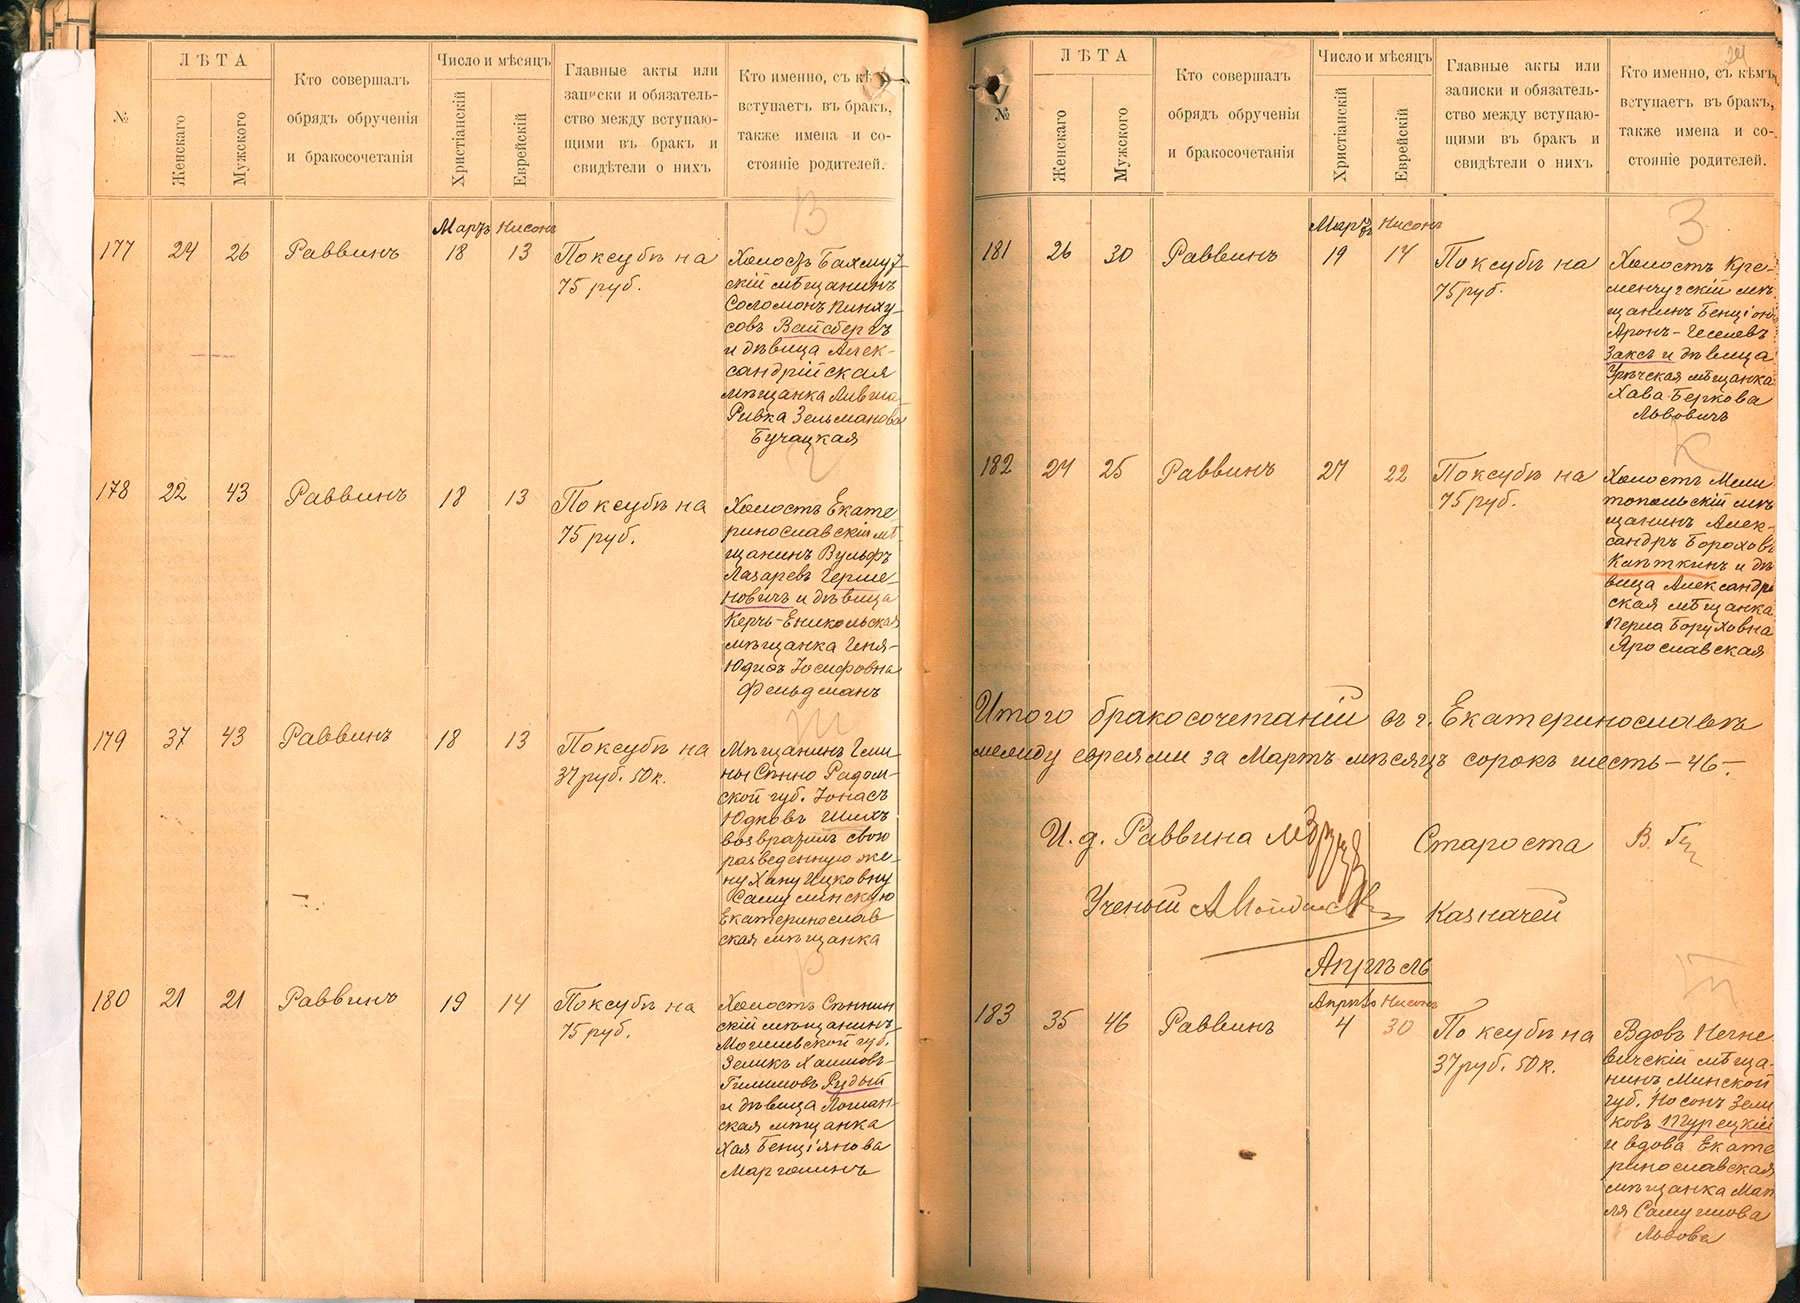 №
ЛѢТА
Женскаго
Мужскаго
Кто совершалъ
обрядъ обрученія
и бракосочетанія
Число и мѣсяцъ
Христіанскій
Еврейскій
Главные акты или
записки и обязатель-
ство между вступаю-
щими въ бракъ и
свидѣтели о нихъ
Кто именно, съ кѣмъ
вступаетъ въ бракъ,
также имена и со-
стояніе родителей.
В
Мартъ Нисонъ
177 24 26 Раввинъ 18 13 По ксубѣ на
75 руб.
Холостъ Бахмут-
скій мѣщанинъ
Соломонъ Пинху-
совъ Вайсбергъ
и дѣвица Алек-
сандрійская
мѣщанка
Ривка Зельманова
Бучацкая
Г
178 22 43 Раввинъ 18 13 По ксубѣ на
75 руб.
Холостъ Екате-
ринославскій мѣ-
щанинъ Вульфъ
Лазаревъ Герше-
новичъ и дѣвица
Керчь-Еникольская
мѣщанка Геня-
Юдиѳь Іосифовна
Фельдманъ
Ш
179 37 43 Раввинъ 18 13 По ксубѣ на
37 руб. 50 к.
Мѣщанинъ Гми-
ны Сѣнно Радом-
ской губ. Іонасъ
Юдковъ Шихъ
возвратилъ свою
разведенную же-
ну Хану Ицковну
Самуминскую
Екатеринослав
ская мѣщанка
Р
180 21 21 Раввинъ 19 14 По ксубѣ на
75 руб.
Холостъ Сѣннин
скій мѣщанинъ
Могилевской губ.
Зеликъ Хаимовъ-
Рудый
и дѣвица Лошан-
ская мѣщанка
Хая Бенціянова
Марголинъ
№
ЛѢТА
Женскаго
Мужского
Кто совершалъ
обрядъ обрученія
и бракосочетанія
Число и мѣсяцъ
Христіанскій
Еврейскій
Главные акты или
записки и обязатель-
ство между вступаю-
щими въ бракъ и
свидѣтели о нихъ
Кто именно, съ кѣмъ
вступаетъ въ бракъ,
также имена и со-
стояніе родителей.
З
Мартъ Нисонъ
181 26 30 Раввинъ 19 14 По ксубѣ на
75 руб.
Холостъ Кре-
менчугскій мѣ-
щанинъ Бенціонъ
Аронъ-Геселевъ
Заксъ и дѣвица
Урѣчская мѣщанка
Хава Беркова
Львовичъ
К
182 24 25 Раввинъ 27 22 По ксубѣ на
75 руб.
Холостъ Мели
топольскій мѣ-
щанинъ Алек-
сандръ Бороховъ
Капткинъ и дѣ
вица Александрі
ская мѣщанка
Перла Боруховна
Ярославская
Итого бракосочетаній въ г. Екатеринославѣ
между евреями за Мартъ мѣсяцъ сорокъ шесть - 46 -.
И. д. Раввина Староста В.
Ученый Казначей
Апрѣль
Апрѣль Нисонъ
183 35 46 Раввинъ 4 30 По ксубѣ на
37 руб. 50 к.
Вдовъ Негне
вичскій мѣща-
нинъ Минской
губ. Носонъ Зели
ковъ Турецкій
и вдова Екате
ринославская
мѣщанка Ман
ля Самуилова
Львова